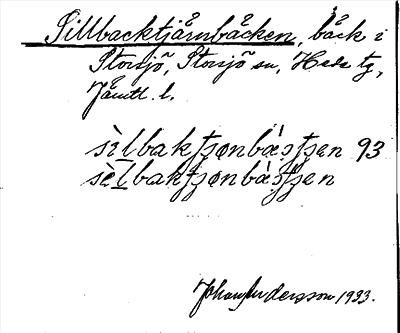 Sillbacktjärnbäcken, bäck i
Storsjö, Storsjö sn, Heds tg,
Jämtl. l.
sìlbakʈʂønbæ̀ʂʈʂen 93
sèlbakʈʂønbæ̀ʂʈʂen
Johan Andersson 1933.